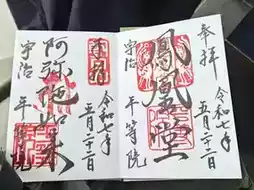 奉拝
令和七年
五月二十二日
鳳凰堂
宇治
平等院
令和七年
五月二十二日
阿弥陀如来
宇治
平等院